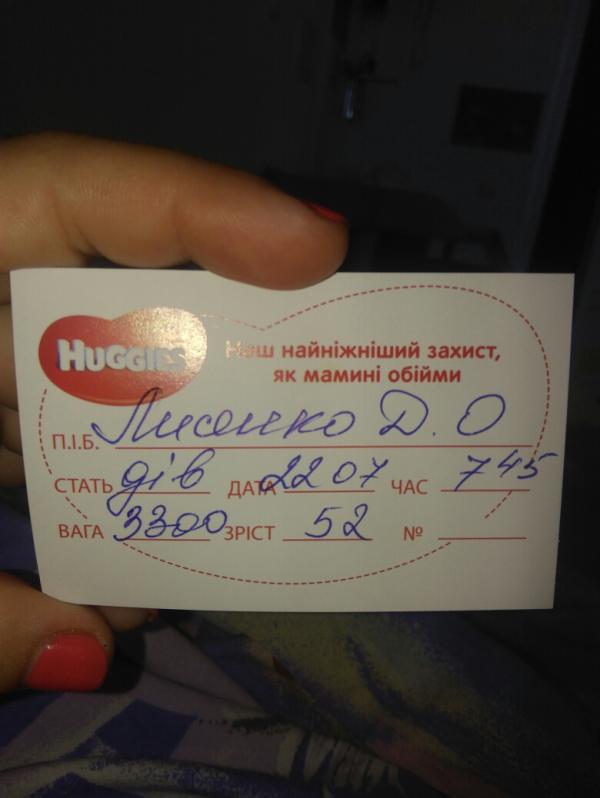 HUGGIES
Наш найніжніший захист,
як мамині обійми
П.І.Б. Лисенко Д. О
СТАТЬ дів ДАТА 22 07 ЧАС 7 45
ВАГА 3300 ЗРІСТ 52 №